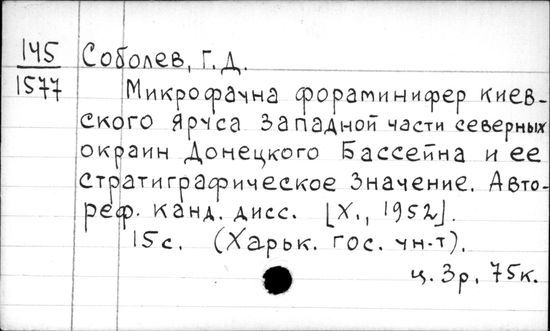 145 Соболев, Г.Д.
1577 Микрофауна фораминифер киев-
ского яруса западной части северных
окраин Донецкого Бассейна и ее
стратиграфическое значение. Авто-
реф. канд. дисс. [Х., 1952].
15с. (Харьк. гос. ун-т).
ц. 3р. 75к.